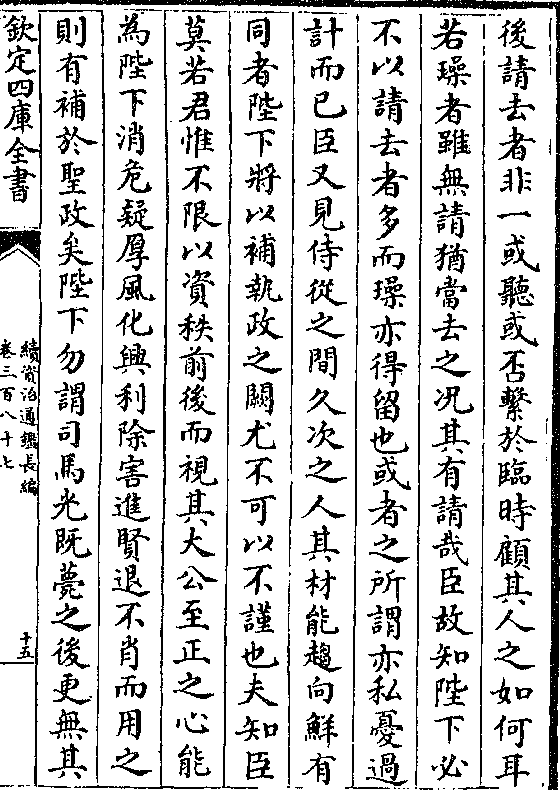 後請去者非一或聽或否繫於臨時顧其人之如何耳
若璪者雖無請猶當去之况其有請哉臣故知陛下必
不以請去者多而璪亦得留也或者之所謂亦私憂過
計而已臣又見侍從之間久次之人其材能趨向鮮有
同者陛下將以補執政之闕尤不可以不謹也夫知臣
莫若君惟不限以資秩前後而視其大公至正之心能
為陛下消危疑厚風化興利除害進賢退不肖而用之
則有補於聖政矣陛下勿謂司馬光既薨之後更無其
欽定四庫全書
續資治通鑑長編
卷三百八十七
十五